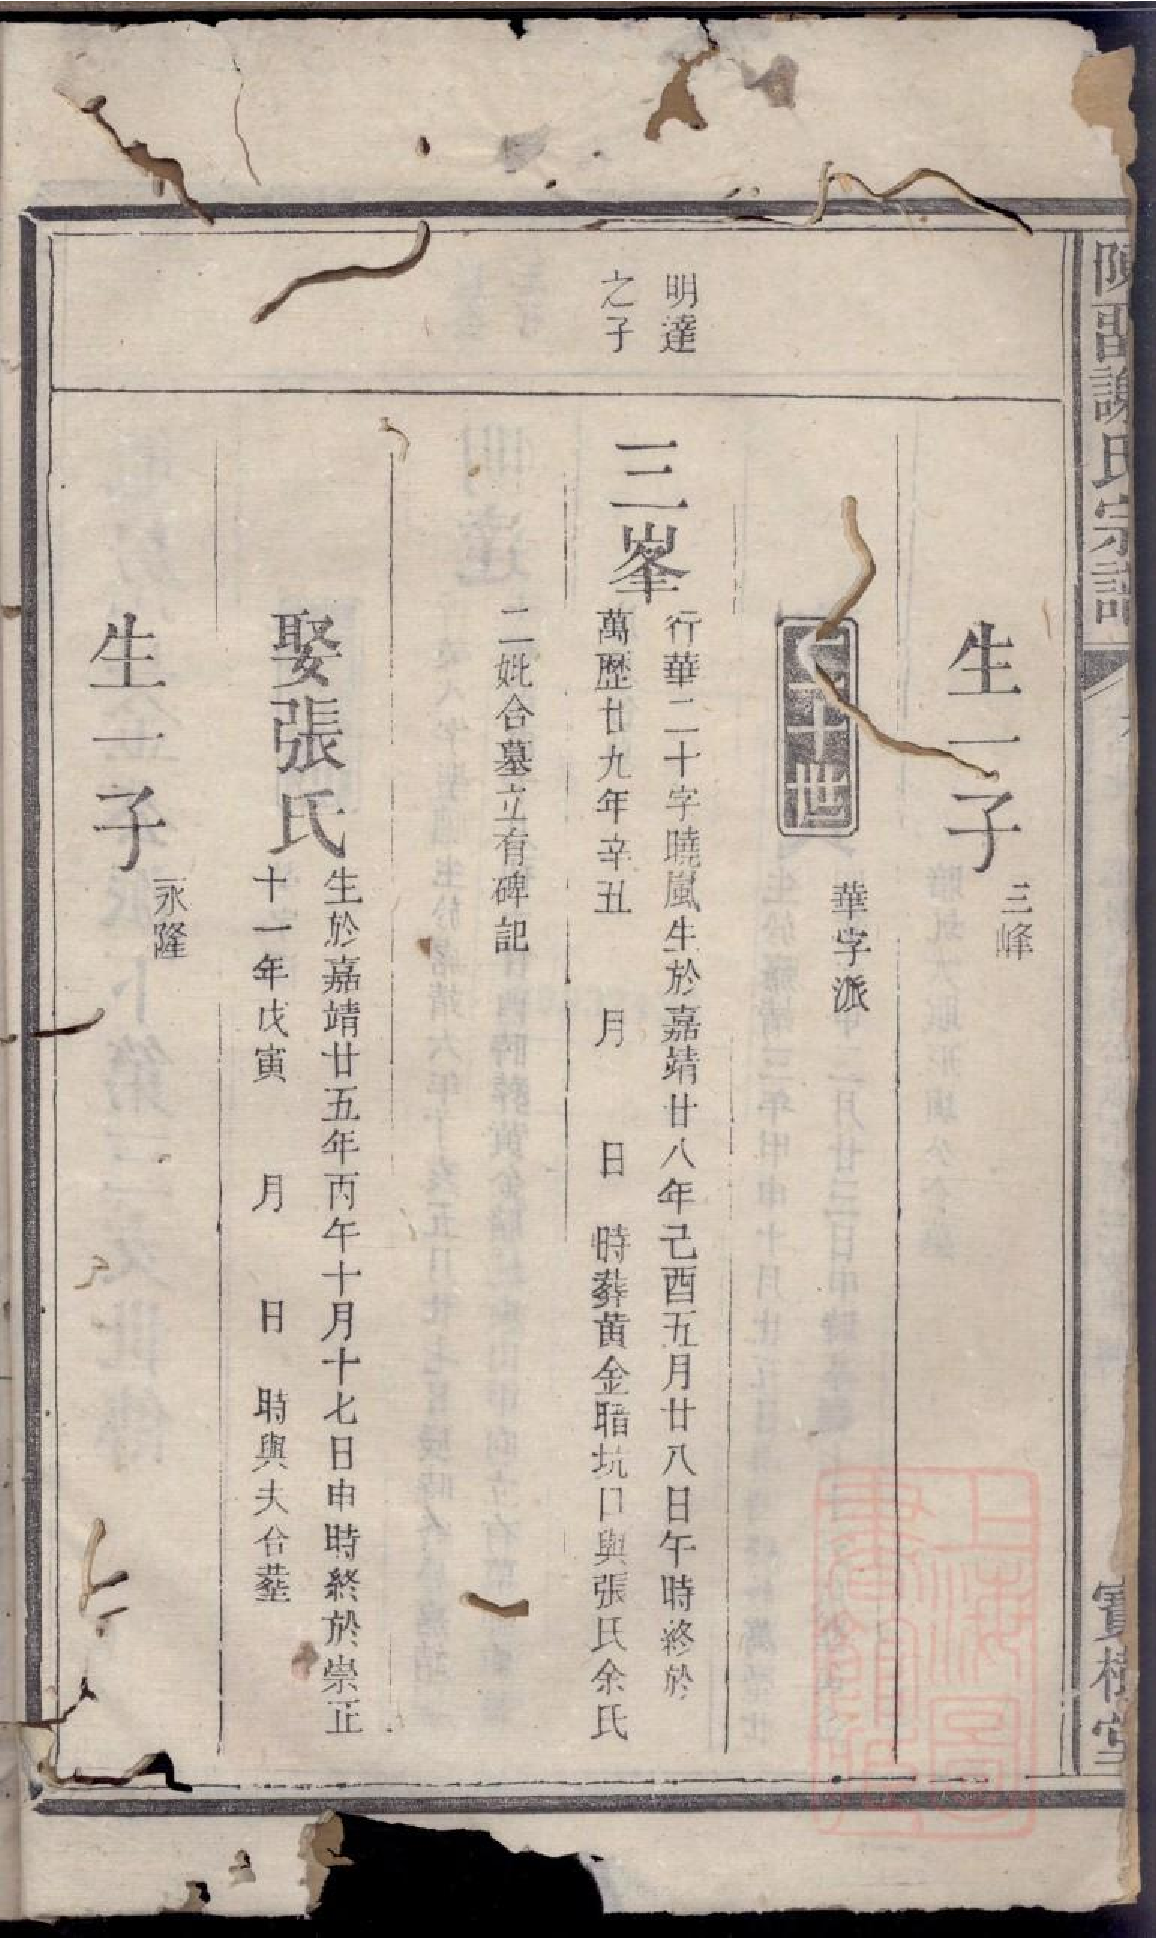 謝氏宗譜
寶樹堂
生一子
三峰
二十世
華字派
明達
之子
三峯
行華二十字曉嵐生於嘉靖廿八年己酉五月廿八日午時終於
萬歷廿九年辛丑 月 日 時葬黃金暗坑口與張氏余氏
二妣合墓立有碑記
娶張氏
生於嘉靖廿五年丙午十月十七日申時終於崇正
十一年戊寅 月 日 時與夫合塟
生一子
永隆
上海圖書館藏